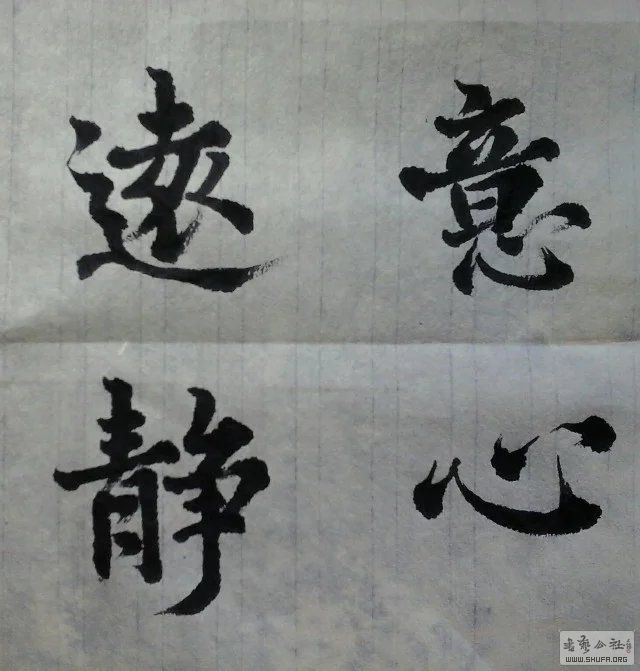 意遠
心静
书艺公社
WWW.SHUFA.ORG